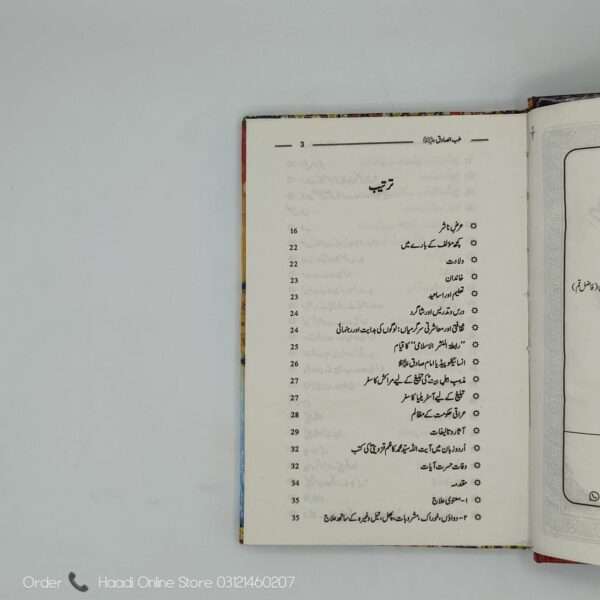 طب الصادق علیہ السلام 3
ترتیب
عرضِ ناشر 16
کچھ مؤلف کے بارے میں 22
ولادت 22
خاندان 23
تعلیم اور اساتید 23
درس و تدریس اور شاگرد 24
ثقافتی اور معاشرتی سرگرمیاں: لوگوں کی ہدایت اور رہنمائی 24
”رابطۃ النشر الاسلامی“ کا قیام 25
انسائیکلوپیڈیا امام صادق علیہ السلام 26
مذہب اہلِ بیتؑ کی تبلیغ کے لیے مراکش کا سفر 27
تبلیغ کے لیے آسٹریلیا کا سفر 27
عراقی حکومت کے مظالم 28
آثار و تالیفات 29
اُردو زبان میں آیت اللہ سید محمد کاظم قزوینیؒ کی کتب 32
وفات حسرت آیات 32
مقدمہ 34
۱- معنوی علاج 35
۲- دواؤں، خوراک، مشروبات، پھل، تیل وغیرہ کے ساتھ علاج 35
(فاضل قم)
Order Haadi Online Store 03121460207